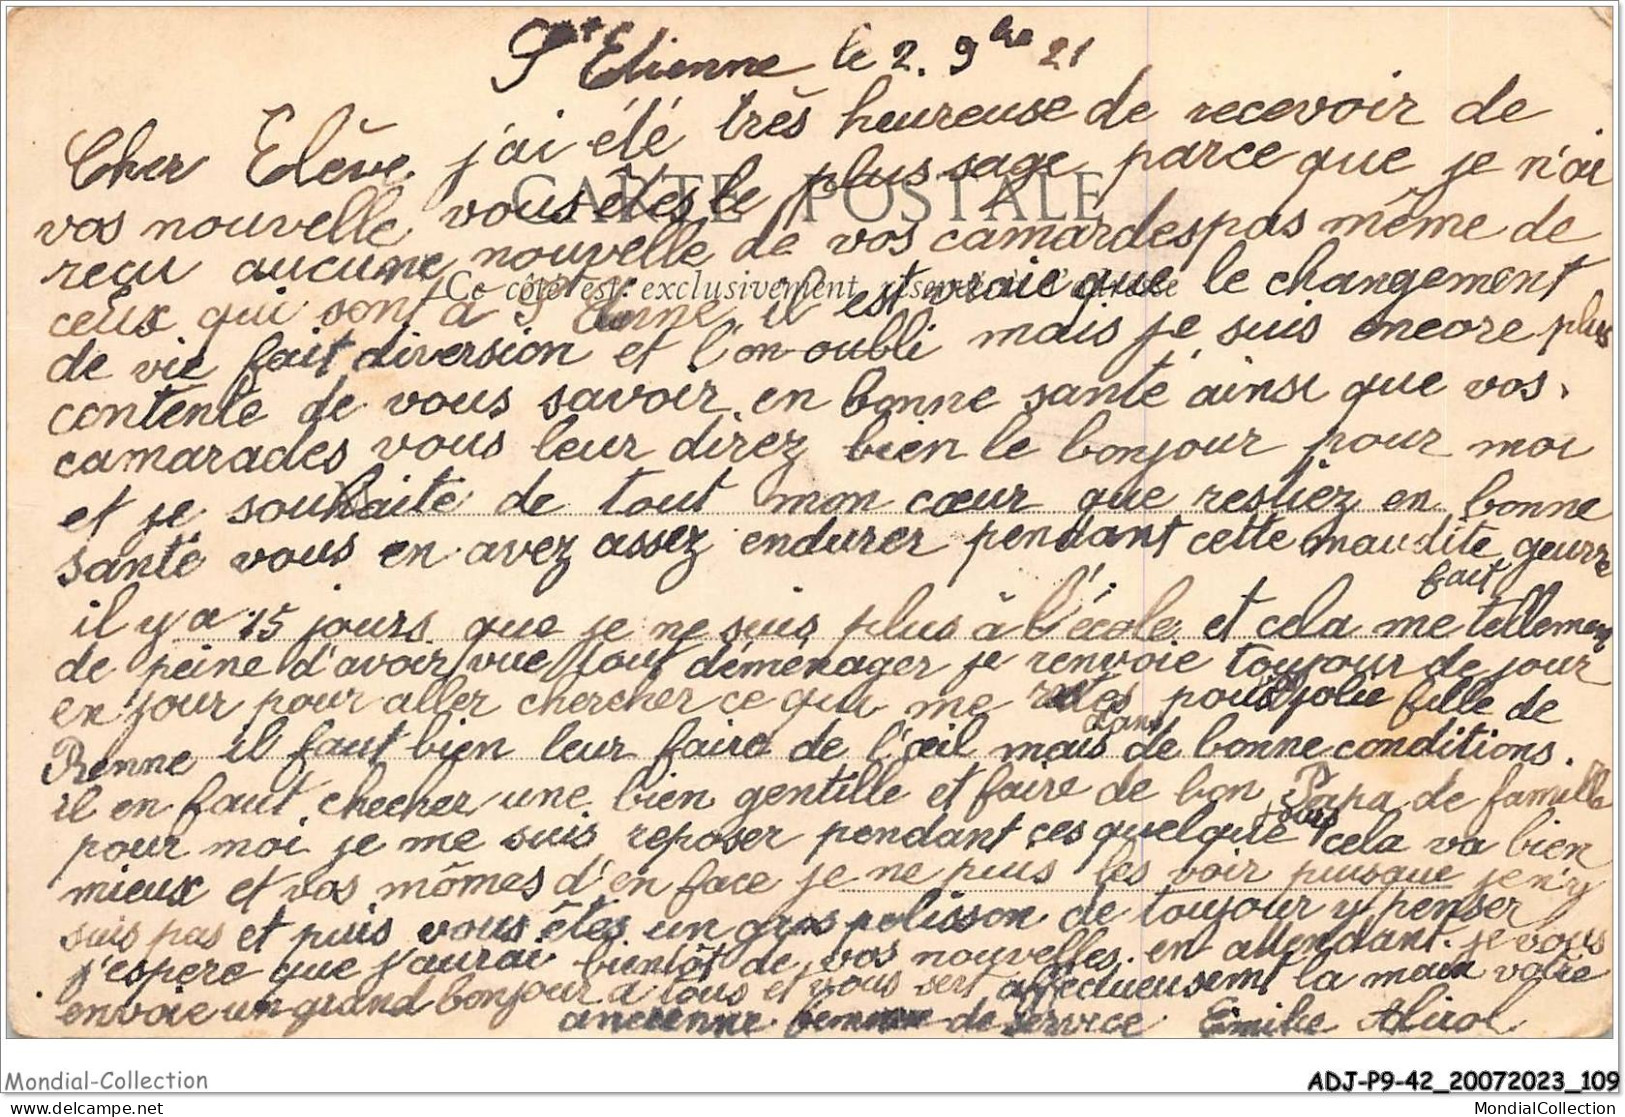 St Etienne le 2. 9bre 21
Cher Elève, j'ai été très heureuse de recevoir de
vos nouvelle vous êtes le plus sage parce que je n'ai
CARTE POSTALE
reçu aucune nouvelle de vos camardes pas même de
Ce côté est exclusivement réservé à l'adresse
ceux qui sont à St Etienne, il est vraie que le changement
de vie fait diversion et l'on oubli mais je suis encore plus
contente de vous savoir en bonne santé ainsi que vos
camarades vous leur direz bien le bonjour pour moi
et je souhaite de tout mon cœur que restiez en bonne
santé vous en avez assez endurer pendant cette maudite geurre
il y a 15 jours que je ne suis plus à l'école et cela me fait tellement
de peine d'avoir vue tout déménager je renvoie toujour de jour
en jour pour aller chercher ce qui me restes pour jolie fille de
Renne il faut bien leur faire de l'œil mais dans de bonne conditions.
il en faut checher une bien gentille et faire de bon Papa de famille
pour moi je me suis reposer pendant ces quelque jours cela va bien
mieux et vos mômes d'en face je ne puis les voir puisque je n'y
suis pas et puis vous êtes un gros polisson de toujour y penser
j'espère que j'aurai bientôt de vos nouvelles. en attendant je vous
envoie un grand bonjour à tous et vous sert affectueusemt la main votre
ancienne femme de service Emilie Alirol
Mondial-Collection
ADJ-P9-42_20072023_109
delcampe.net
MondialCollection